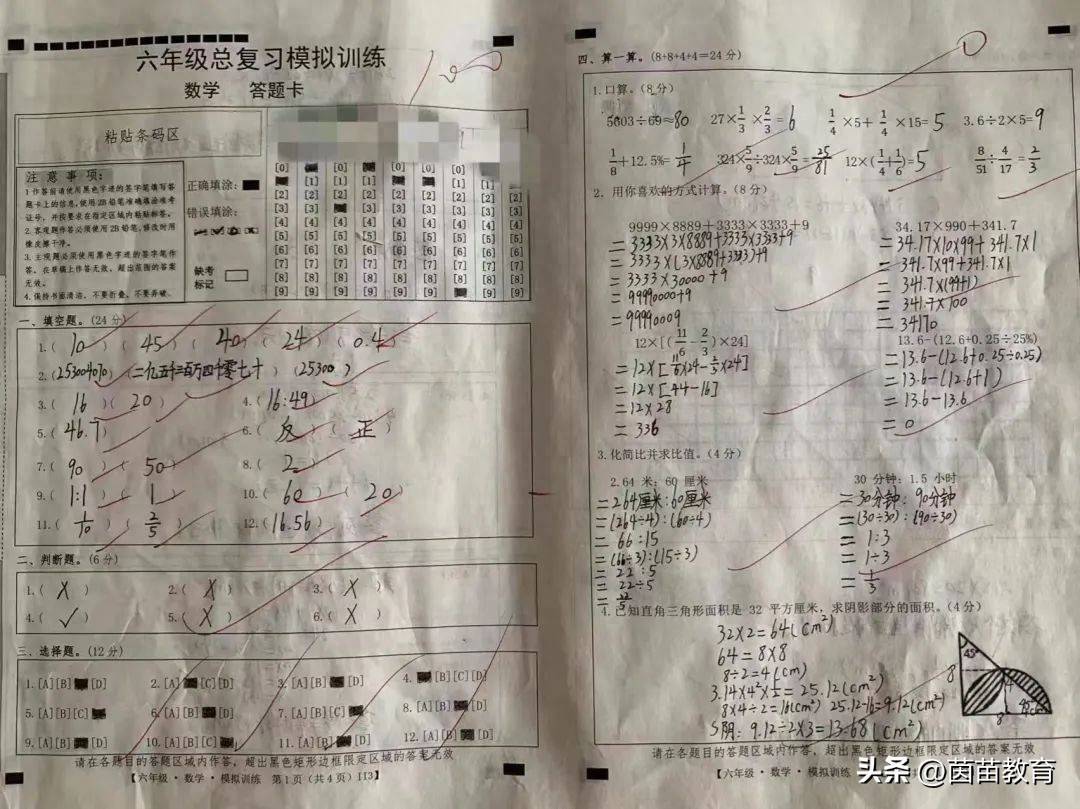 六年级总复习模拟训练
数学 答题卡
100
粘贴条码区
注意事项:
1.作答前请使用黑色字迹的签字笔填写答
题卡上的信息,使用2B铅笔准确填涂准考
证号,并按要求在指定区域内粘贴标签。
2.客观题作答必须使用2B铅笔,修改时用
橡皮擦干净。
3.主观题必须使用黑色字迹的签字笔作
答,在草稿上作答无效,超出范围的答案
无效。
4.保持书面清洁,不要折叠、不要弄破。
正确填涂:
错误填涂:
缺考
标记
[0] [0] [0] [0] [0] [0]
[1] [1] [1] [1] [1] [1]
[2] [2] [2] [2] [2] [2] [2] [2] [2]
[3] [3] [3] [3] [3] [3] [3] [3]
[4] [4] [4] [4] [4] [4] [4] [4] [4]
[5] [5] [5] [5] [5] [5] [5] [5] [5]
[6] [6] [6] [6] [6] [6] [6] [6] [6]
[7] [7] [7] [7] [7] [7] [7] [7] [7]
[8] [8] [8] [8] [8] [8] [8] [8] [8]
[9] [9] [9] [9] [9] [9] [9] [9]
一、填空题。(24分)
1.( 10 ) ( 45 ) ( 40 ) ( 24 ) ( 0.4 )
2.(253004070) (二亿五千三百万四千零七十) (25300)
3.( 16 ) ( 20 ) 4.(16:49)
5.( 46.7 ) 6.( 反 ) ( 正 )
7.( 90 ) ( 50 ) 8.( 2 )
9.( 1:1 ) ( 1 ) 10.( 60 ) ( 20 )
11.( 1/10 ) ( 2/5 ) 12.(16.56)
二、判断题。(6分)
1.( X ) 2.( X ) 3.( X )
4.( ✓ ) 5.( X ) 6.( X )
三、选择题。(12分)
1.[A][B] [D] 2.[A] [C][D] 3.[A][B] [D] 4. [B][C][D]
5.[A][B][C] 6.[A][B] [D] 7.[A][B][C] 8.[A][B] [D]
9.[A][B] [D] 10.[A][B][C] 11.[A][B] [D] 12.[A][B] [D]
请在各题目的答题区域内作答,超出黑色矩形边框限定区域的答案无效
【六年级·数学·模拟训练 第1页(共4页)H3】
四、算一算。(8+8+4+4=24分)
1.口算。(8分)
5603÷69≈80 27×1/3×2/3=6 1/4×5+1/4×15=5 3.6÷2×5=9
1/8+12.5%=1/4 324×5/9÷324×5/9=25/81 12×(1/4+1/6)=5 8/51÷4/17=2/3
2. 用你喜欢的方式计算。(8分)
9999×8889+3333×3333+9
=3333×3×8889+3333×3333+9
=3333×(3×8889+3333)+9
=3333×30000+9
=99990000+9
=99990009
34.17×990+341.7
=34.17×10×99+341.7×1
=341.7×99+341.7×1
=341.7×(99+1)
=341.7×100
=34170
12×[(11/6-2/3)×24]
=12×[11/6×24-2/3×24]
=12×[44-16]
=12×28
=336
13.6-(12.6+0.25÷25%)
=13.6-(12.6+0.25÷0.25)
=13.6-(12.6+1)
=13.6-13.6
=0
3.化简比并求比值。(4分)
2.64 米:60 厘米
=264厘米:60厘米
=(264÷4):(60÷4)
=66:15
=(66÷3):(15÷3)
=22:5
=22÷5
=22/5
30 分钟:1.5 小时
=30分钟:90分钟
=(30÷30):(90÷30)
=1:3
=1÷3
=1/3
4.已知直角三角形面积是 32 平方厘米,求阴影部分的面积。(4分)
32×2=64(cm²)
64=8×8
8÷2=4(cm)
3.14×4²×1/2=25.12(cm²)
8×4÷2=16(cm²) 25.12-16=9.12(cm²)
S阴:9.12÷2×3=13.68(cm²)
45°
8
4
8
45°
请在各题目的答题区域内作答,超出黑色矩形边框限定区域的答案无效
【六年级·数学·模拟训练
头条 @茵苗教育